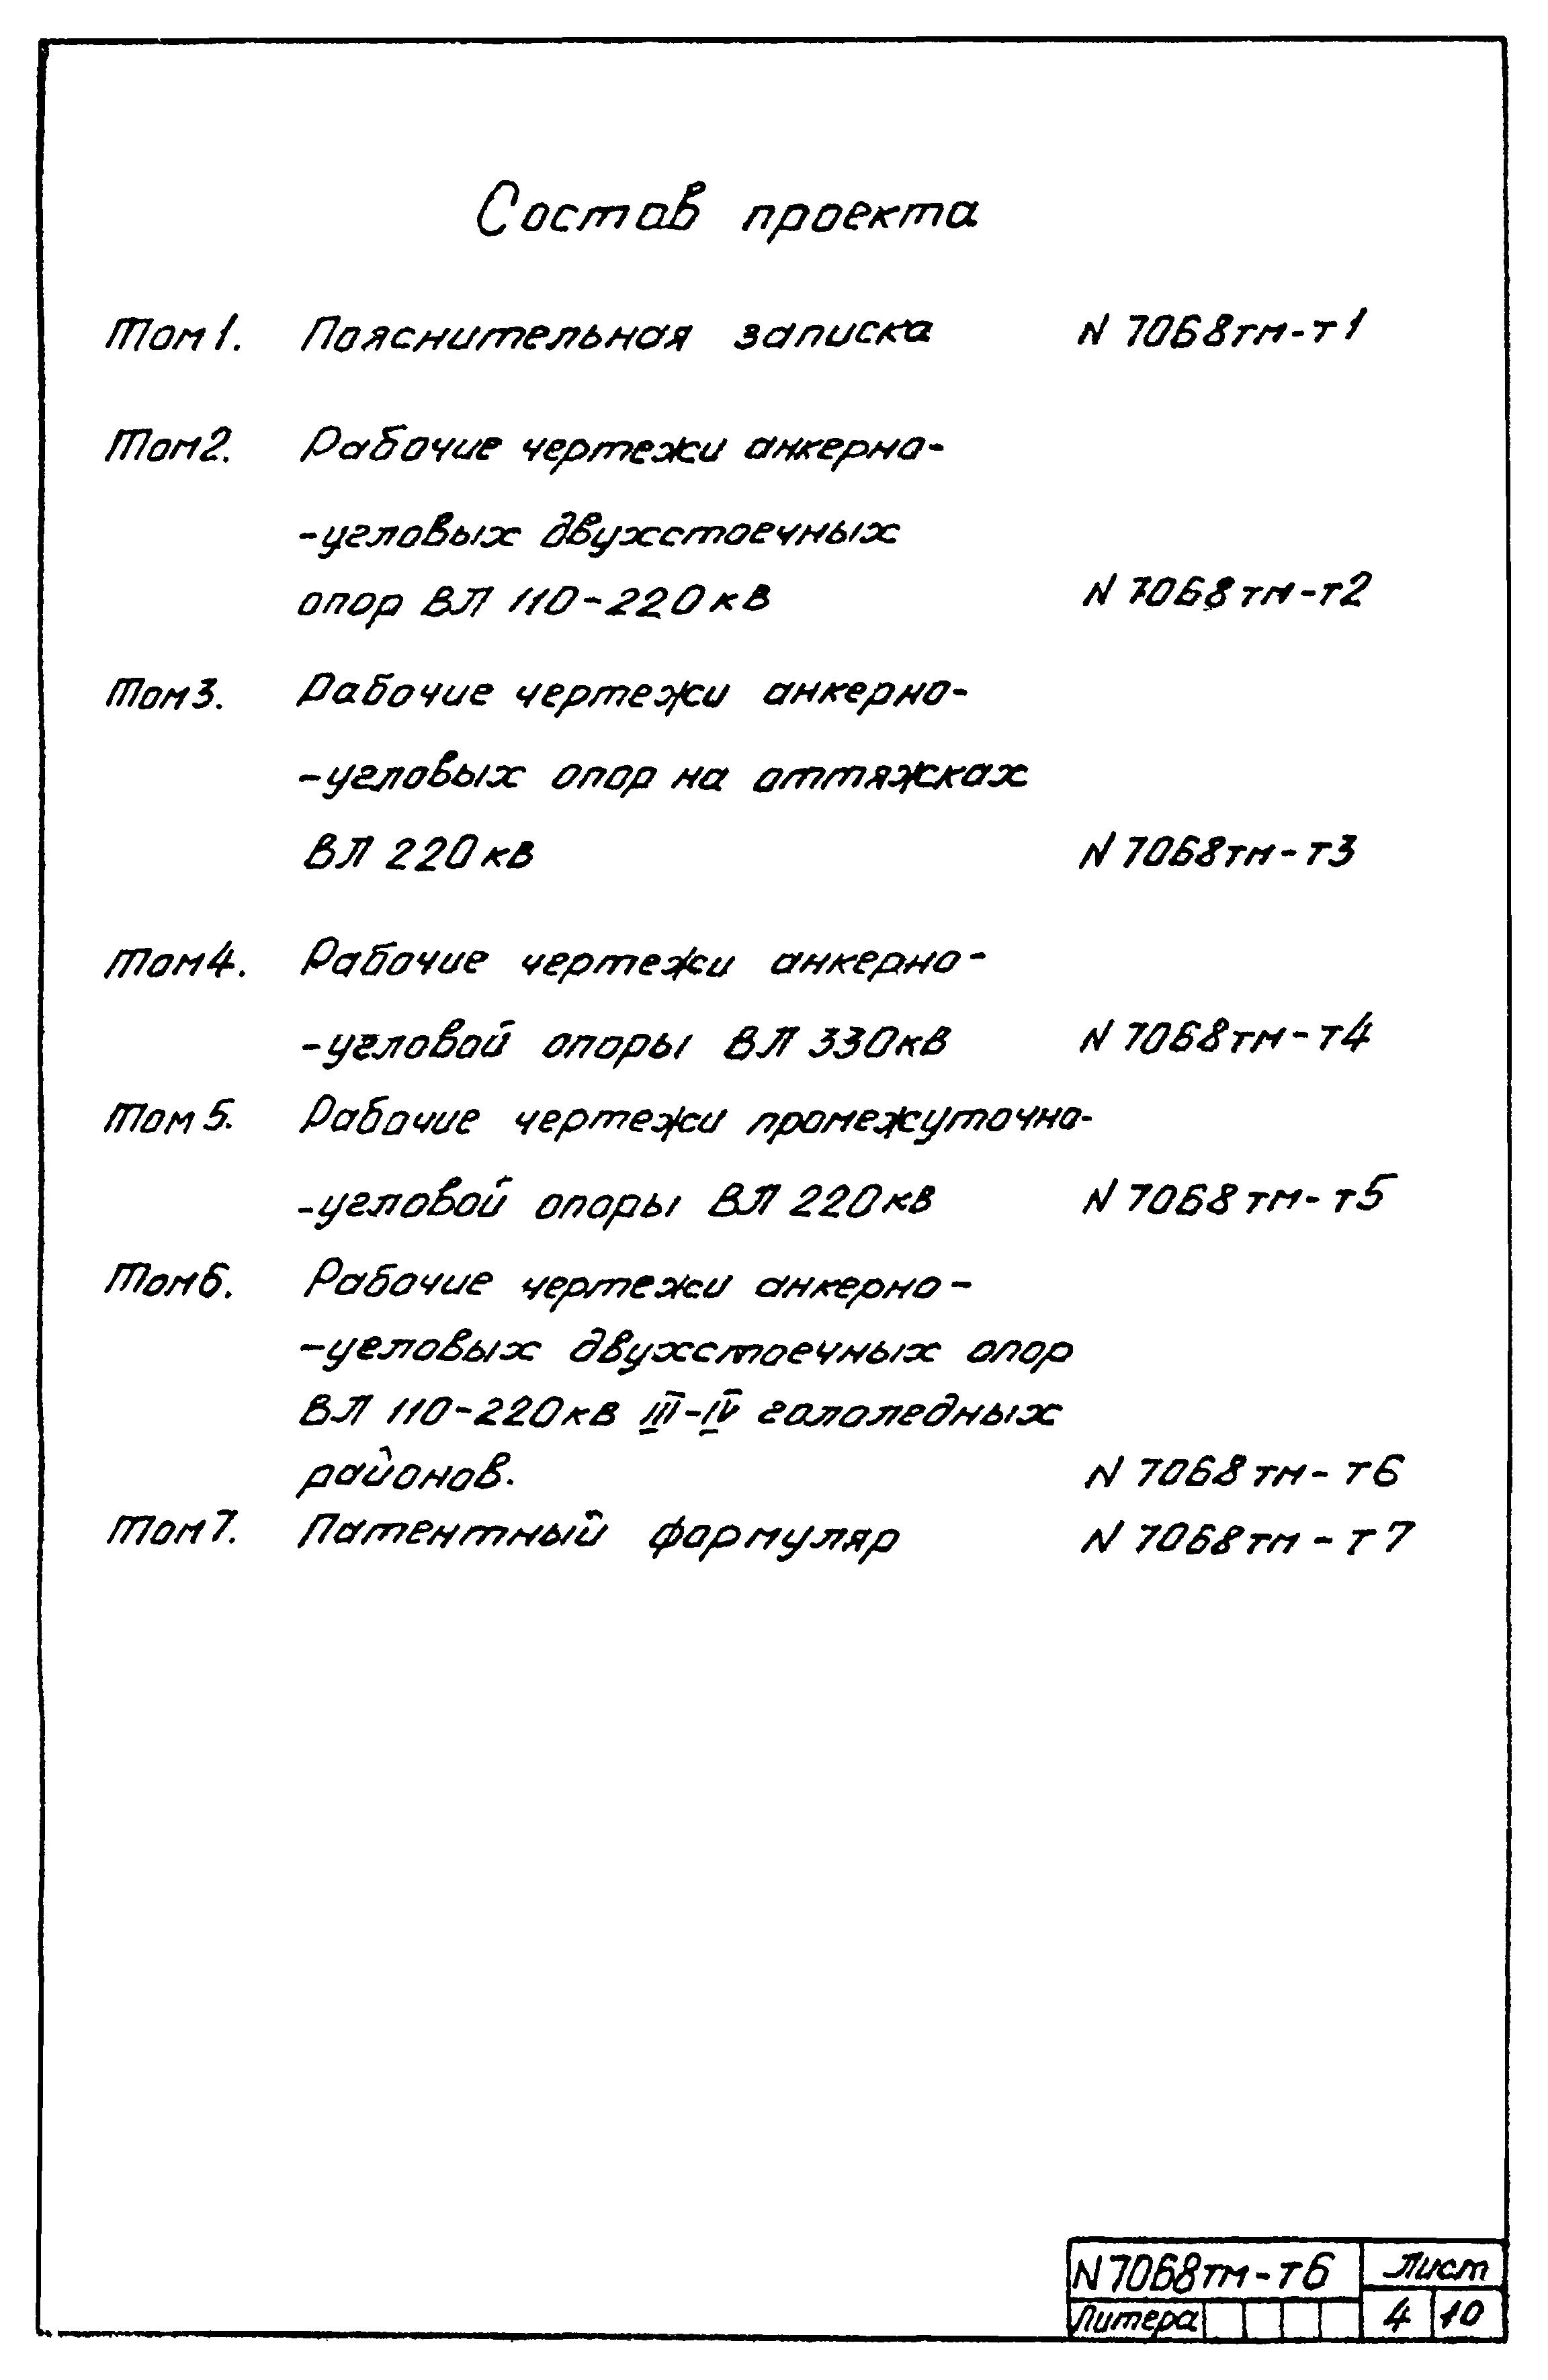 Состав проекта
Том 1. Пояснительная записка N 7068тм-т1
Том 2. Рабочие чертежи анкерно-
-угловых двухстоечных
опор ВЛ 110-220кВ N 7068тм-т2
Том 3. Рабочие чертежи анкерно-
-угловых опор на оттяжках
ВЛ 220кв N 7068тм-т3
Том 4. Рабочие чертежи анкерно-
-угловой опоры ВЛ 330кВ N 7068тм-т4
Том 5. Рабочие чертежи промежуточно-
-угловой опоры ВЛ 220кВ N 7068тм-т5
Том 6. Рабочие чертежи анкерно-
-угловых двухстоечных опор
ВЛ 110-220кв III-IV гололедных
районов. N 7068тм-т6
Том 7. Патентный формуляр N 7068тм-т7
N7068тм-т6 Лист
Литера 4 10